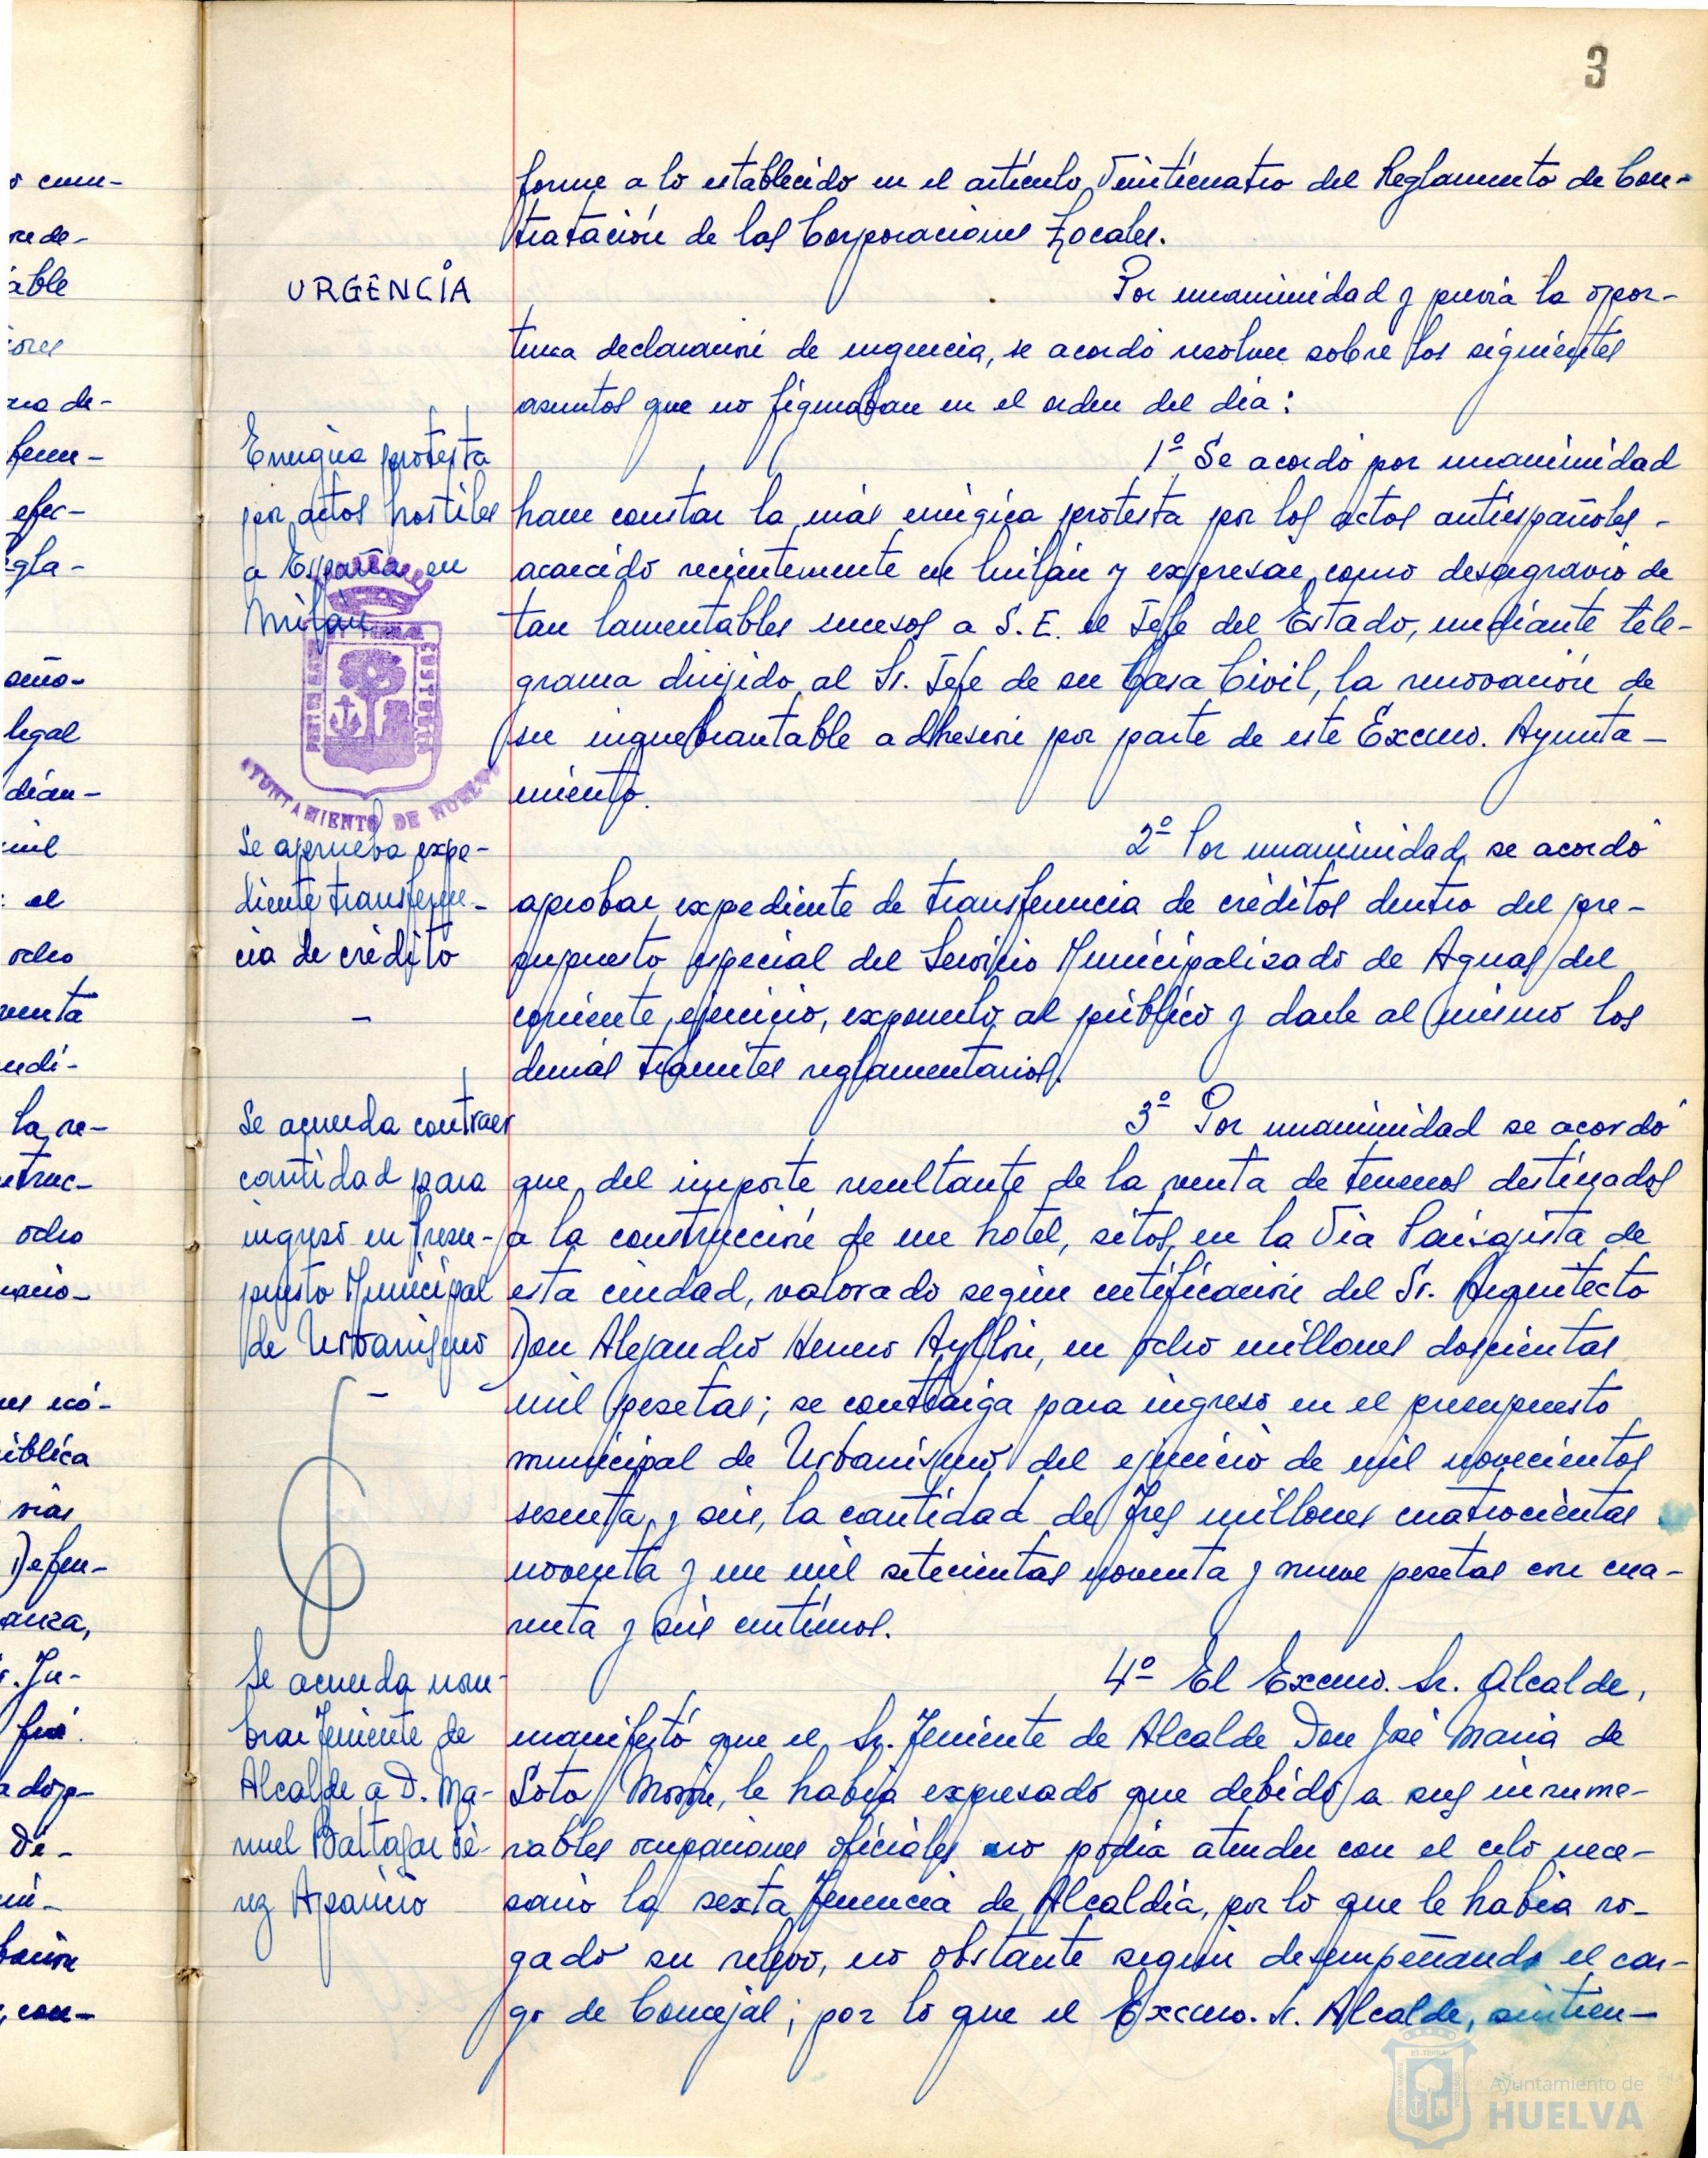 3
forme a lo establecido en el artículo Veinticuatro del Reglamento de Con-
tratación de las Corporaciones Locales.
URGENCIA
Por unanimidad y previa la opor-
tuna declaración de urgencia, se acordó resolver sobre los siguientes
asuntos que no figuraban en el orden del día:
Enérgica protesta
por actos hostiles
a España en
Milán
1º Se acordó por unanimidad
hacer constar la más enérgica protesta por los actos antiespañoles -
acaecido recientemente en Milán y expresar, como desagravio de
tan lamentables sucesos a S.E. el Jefe del Estado, mediante tele-
grama dirigido al Sr. Jefe de su Casa Civil, la renovación de
su inquebrantable adhesión por parte de este Excmo. Ayunta-
miento.
AYUNTAMIENTO DE HUELVA
Se aprueba expe-
diente transferen-
cia de crédito
-
2º Por unanimidad, se acordó
aprobar expediente de transferencia de créditos dentro del pre-
supuesto especial del Servicio Municipalizado de Aguas del
corriente ejercicio, exponerlo al público y darle al mismo los
demás trámites reglamentarios.
Se acuerda contraer
cantidad para
ingreso en Presu-
puesto Municipal
de Urbanismo
-
3º Por unanimidad se acordó
que del importe resultante de la venta de terrenos destinados
a la construcción de un hotel, sitos en la Vía Paisajista de
esta ciudad, valorado según certificación del Sr. Arquitecto
Don Alejandro Herrero Ayllón, en ocho millones doscientas
mil pesetas; se contraiga para ingreso en el presupuesto
municipal de Urbanismo del ejercicio de mil novecientos
sesenta y seis, la cantidad de tres millones cuatrocientas
noventa y un mil setecientas noventa y nueve pesetas con cua-
renta y seis centimos.
Se acuerda nom-
brar Teniente de
Alcalde a D. Ma-
nuel Baltasar Pé-
rez Aparicio
4º El Excmo. Sr. Alcalde,
manifestó que el Sr. Teniente de Alcalde Don José María de
Soto Morón, le había expresado que debido a sus innume-
rables ocupaciones oficiales no podía atender con el celo nece-
sario la sexta Tenencia de Alcaldía, por lo que le había ro-
gado su relevo, no obstante seguir desempeñando el car-
go de Concejal; por lo que el Excmo. Sr. Alcalde, sintien-
Ayuntamiento de
HUELVA